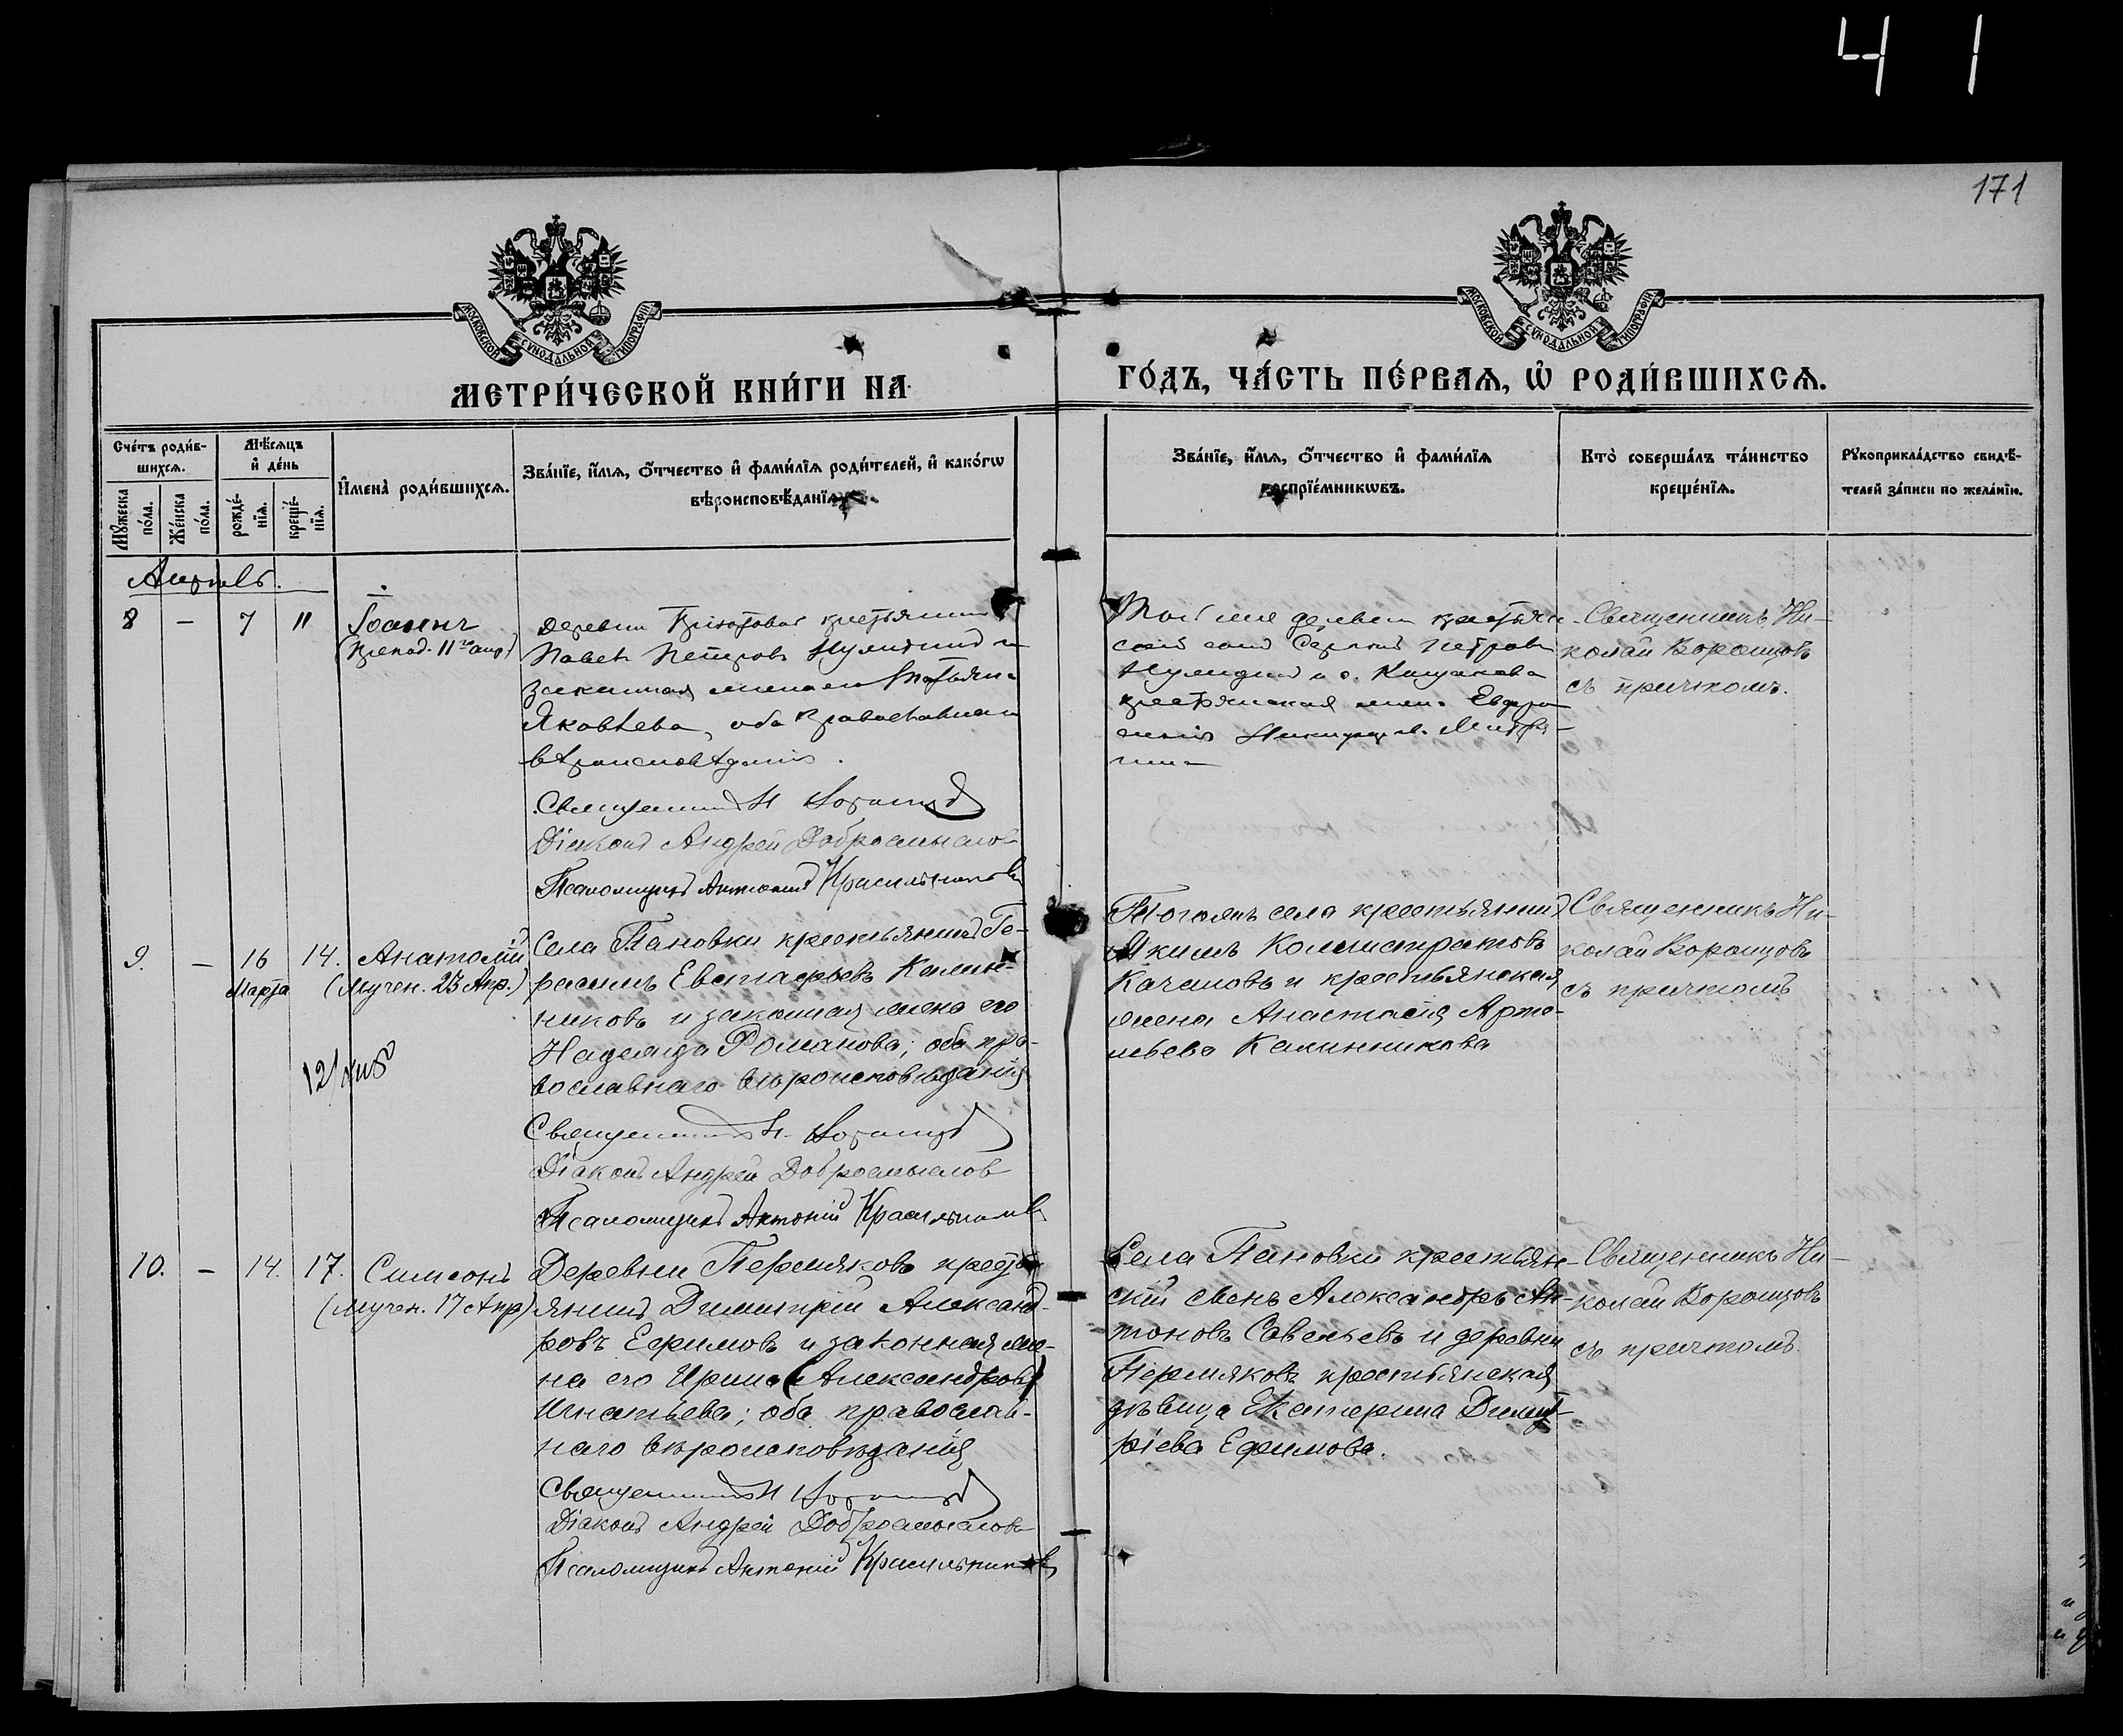 4 1
171
МОСКОВСКОЙ СѴНОДАЛЬНОЙ ТИПОГРАФІИ
МОСКОВСКОЙ СѴНОДАЛЬНОЙ ТИПОГРАФІИ
МЕТРИ́ЧЕСКОЙ КНИ́ГИ НА
ГО́ДЪ, ЧА́СТЬ ПЕ́РВАЯ, Ѡ҆ РОДИ́ВШИХСЯ.
Сче́тъ роди́в-
шихся.
Мꙋ́жеска по́ла.
Же́нска по́ла.
Мѣ́сяцъ
и҆ де́нь
рожде́-
нїя.
креще́-
нїя.
И҆мена̀ роди́вшихся.
Зва́нїе, и҆́мя, ѻ҆́тчество и҆ фами́лїя роди́телей, и҆ како́гѡ
вѣроисповѣ́данїя.
Зва́нїе, и҆́мя, ѻ҆́тчество и҆ фами́лїя
воспрїе́мникѡвъ.
Кто̀ соверша́лъ та́инство
креще́нїя.
Рꙋкоприкла́дство свидѣ́-
телей за́писи по жела́нїю.
Апрель.
8 – 7 11 Іоаннъ
(препод. 11го апр)
Деревни крестьянинъ
Павелъ Петровъ и
законная жена его Татьяна
Яковлева, оба православнаго
вѣроисповѣданія.
Священникъ Н Воронцовъ
Діаконъ Андрей Добросмысловъ
Псаломщикъ Антоній Красильниковъ
Той же деревни крестьян-
скій сынъ Сергѣй Петровъ
и с.
крестьянская жена Евдо-
Священникъ Ни-
колай Воронцовъ
съ причтомъ.
9. – 16 14. Анатолій
Марта (Мучен. 23 Апр.)
Села Пановки крестьянинъ Ге-
расимъ Евстафьевъ Калин-
никовъ и законная жена его
Надежда Романова; оба пра-
вославнаго вѣроисповѣданія
Священникъ Н. Воронцовъ
Діаконъ Андрей Добросмыслов
Псаломщикъ Антоній Красильниковъ
Тогожъ села крестьянинъ
Якимъ Каллистратовъ
Качановъ и крестьянская
жена Анастасія Арте-
мьева Калинникова
Священникъ Ни-
колай Воронцовъ
съ причтомъ
10. – 14. 17. Симеонъ
(Мучен. 17 Апр)
Деревни Пермяковъ кресть-
янинъ Димитрій Александ-
ровъ Ефимовъ и законная же-
на его Ирина (Александрова)
Игнатьева; оба православ-
наго вѣроисповѣданія
Священникъ Н Воронцовъ
Діаконъ Андрей Добросмысловъ
Псаломщикъ Антоній Красильниковъ
Села Пановки крестьян-
скій сынъ Александръ Ан-
тоновъ Савельевъ и деревни
Пермяковъ крестьянская
дѣвица Екатерина Димит-
ріева Ефимова.
Священникъ Ни-
колай Воронцовъ
съ причтомъ.